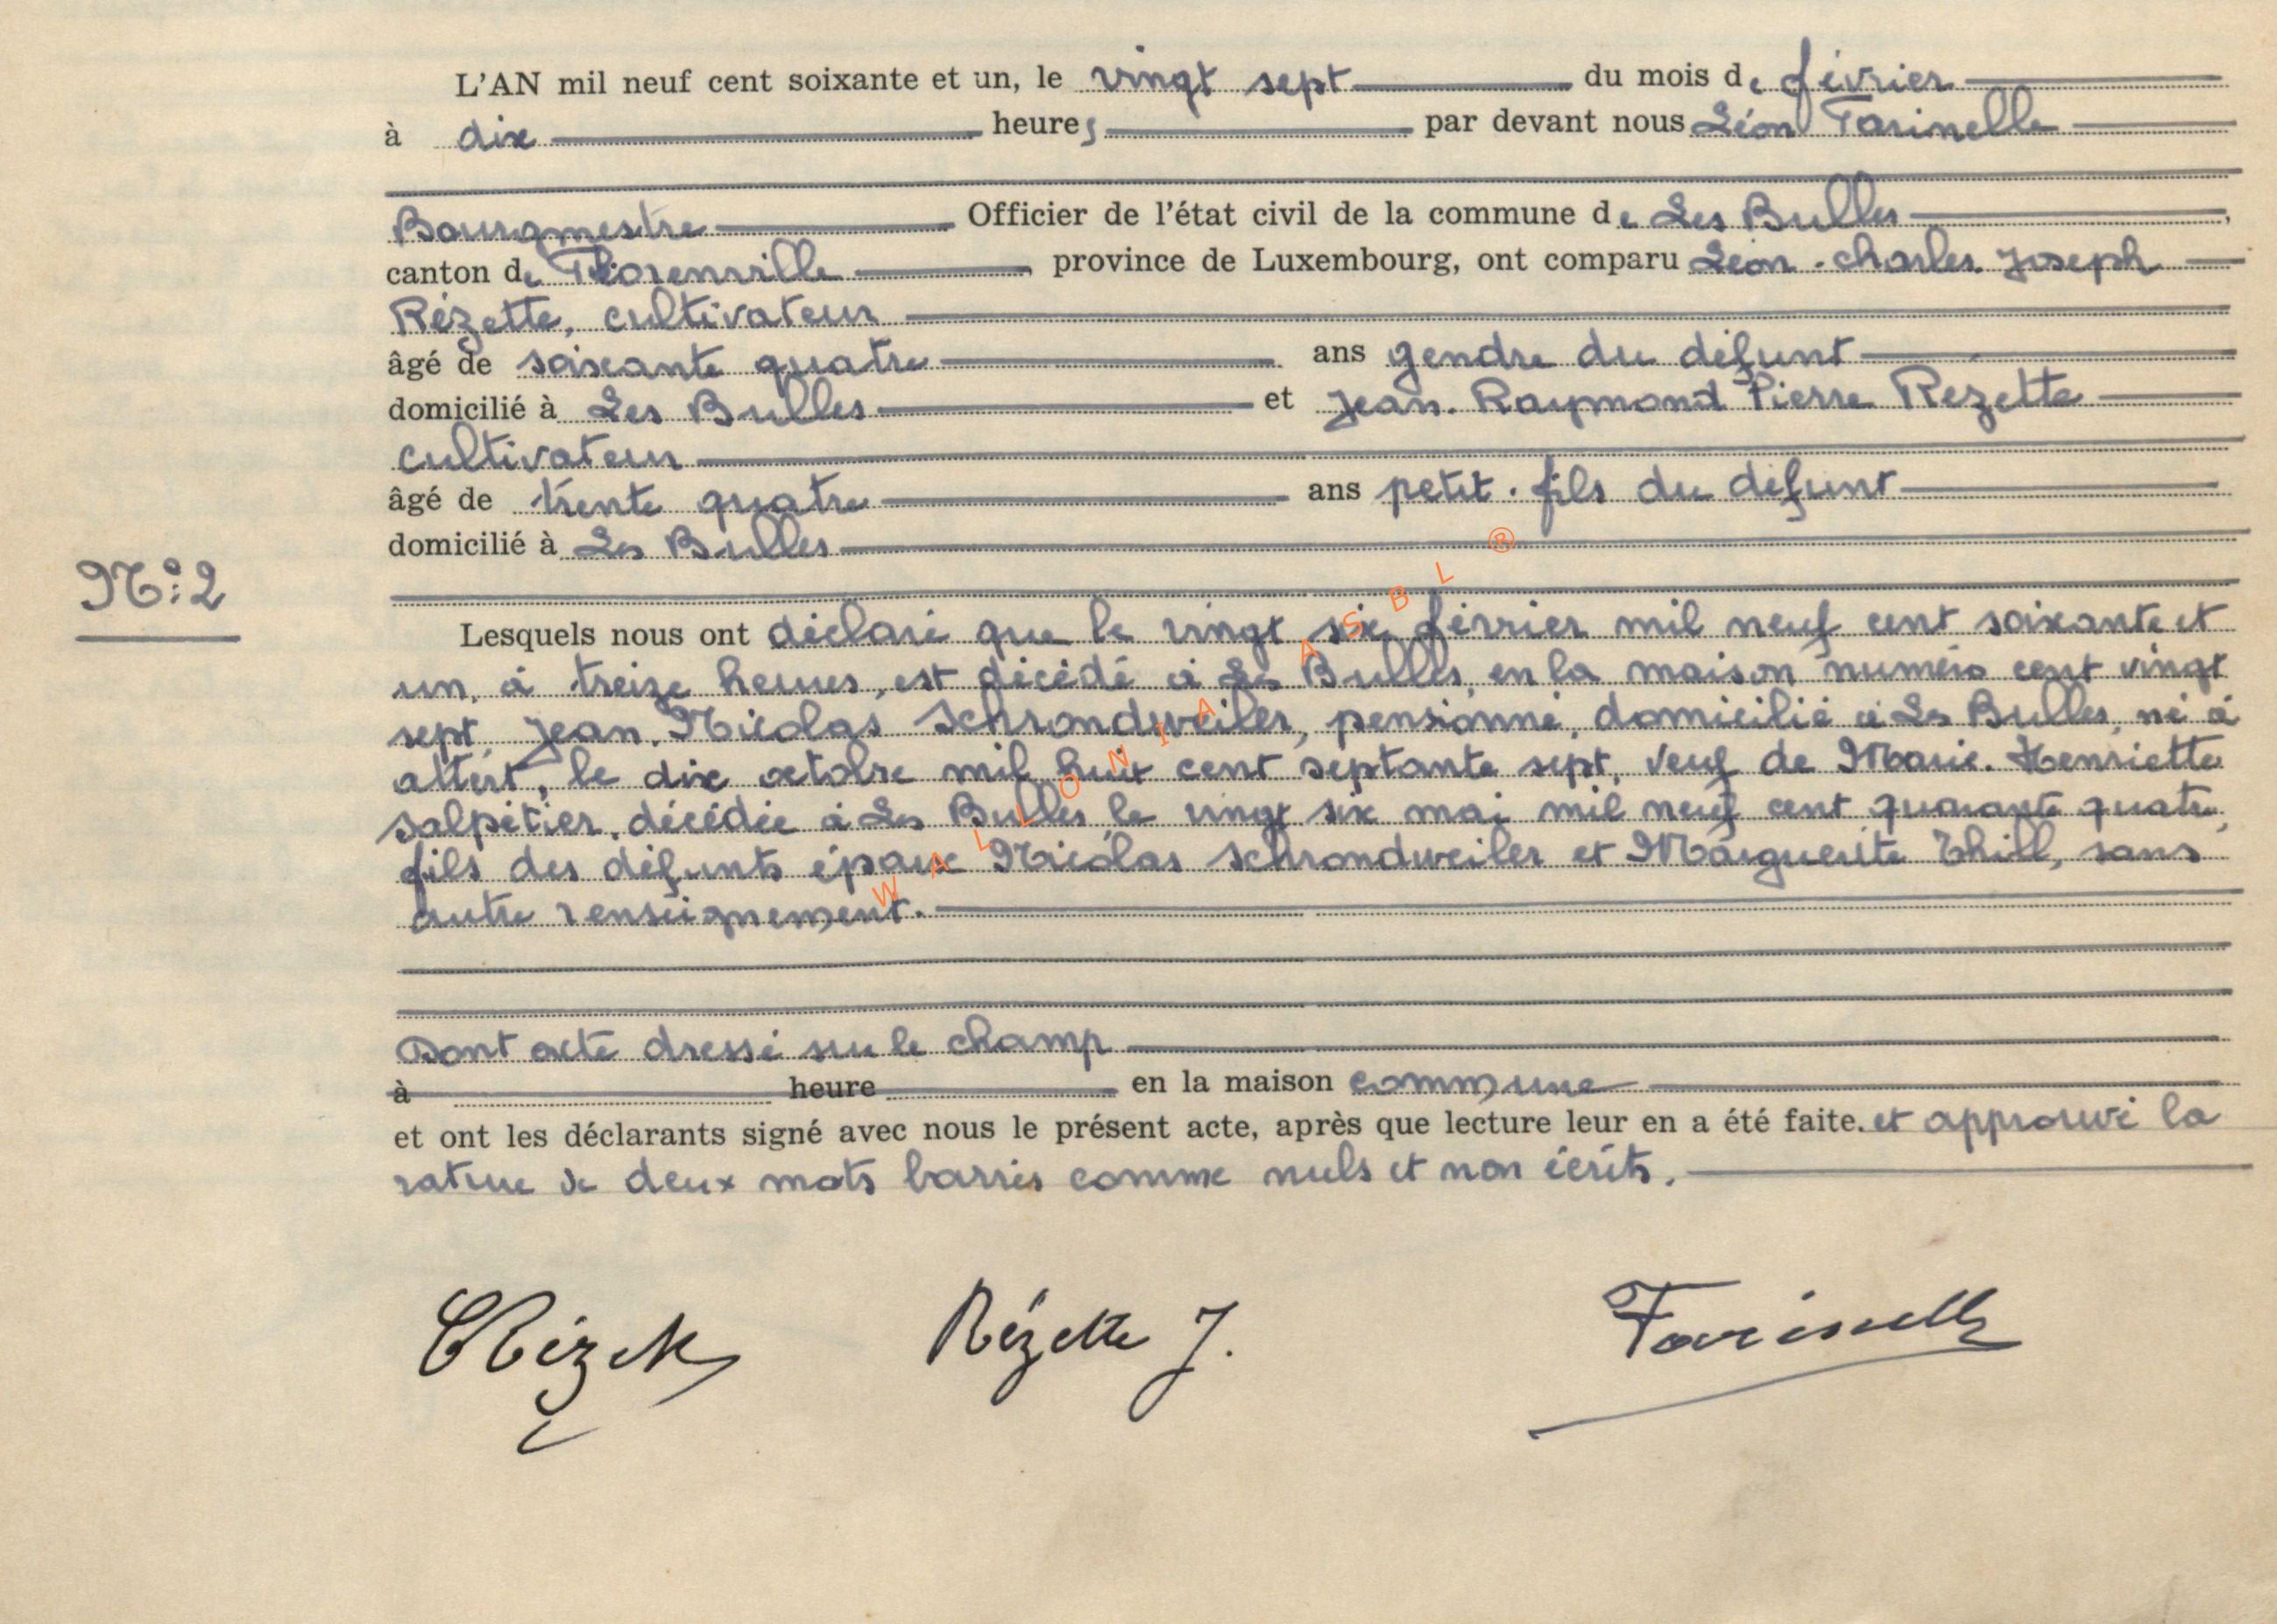 L'AN mil neuf cent soixante et un, le vingt sept du mois de février
à dix heures par devant nous Léon Farinelle
Bourgmestre Officier de l'état civil de la commune de Les Bulles,
canton de Florenville province de Luxembourg, ont comparu Léon-Charles-Joseph
Rézette, cultivateur
âgé de soixante quatre ans gendre du défunt
domicilié à Les Bulles et Jean-Raymond Pierre Rezette
cultivateur
âgé de trente quatre ans petit-fils du défunt
domicilié à Les Bulles
N°: 2
Lesquels nous ont déclaré que le vingt six février mil neuf cent soixante et
un, à treize heures, est décédé à Les Bulles, en la maison numéro cent vingt
sept, Jean-Nicolas Schrondweiler, pensionné, domicilié à Les Bulles, né à
attert, le dix octobre mil huit cent septante sept, veuf de Marie-Henriette
Salpétier, décédée à Les Bulles, le vingt six mai mil neuf cent quarante quatre,
fils des défunts époux Nicolas Schrondweiler et Marguerite Thill, sans
autre renseignement.
Dont acte dressé sur le champ
à heure en la maison commune
et ont les déclarants signé avec nous le présent acte, après que lecture leur en a été faite. et approuvé la
rature de deux mots barrés comme nuls et non écrits.
Rézette J. Farinelle
WALLONIA ASBL ®